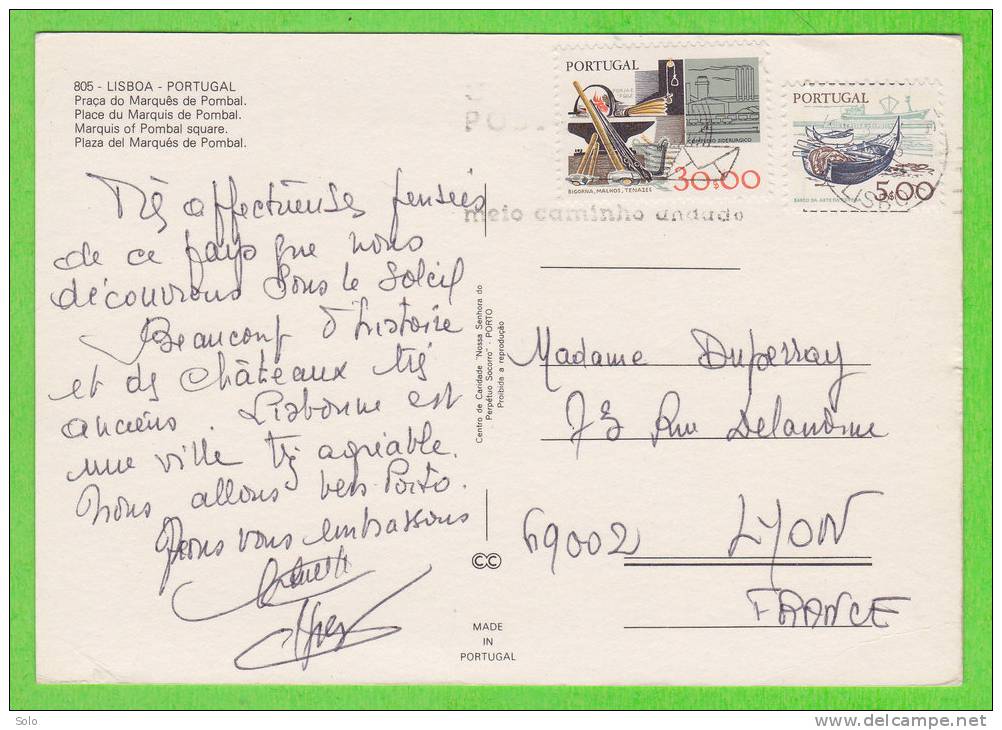 805 - LISBOA - PORTUGAL
Praça do Marquês de Pombal.
Place du Marquis de Pombal.
Marquis of Pombal square.
Plaza del Marqués de Pombal.
Très affectueuses pensées
de ce pays que nous
découvrons sous le soleil
Beaucoup d'histoire
et de châteaux très
anciens. Lisbonne est
une ville très agréable.
Nous allons vers Porto.
vous embrassons
Centro de Caridade "Nossa Senhora do
Perpétuo Socorro" - PORTO
Proibida a reprodução
CC
MADE
IN
PORTUGAL
PORTUGAL
BIGORNA, MALHOS, TENAZES
30$00
PORTUGAL
5$00
meio caminho andado
LISBO
Madame Duperray
73 Rue Delandine
69002 LYON
FRANCE
Solo
www.delcampe.net